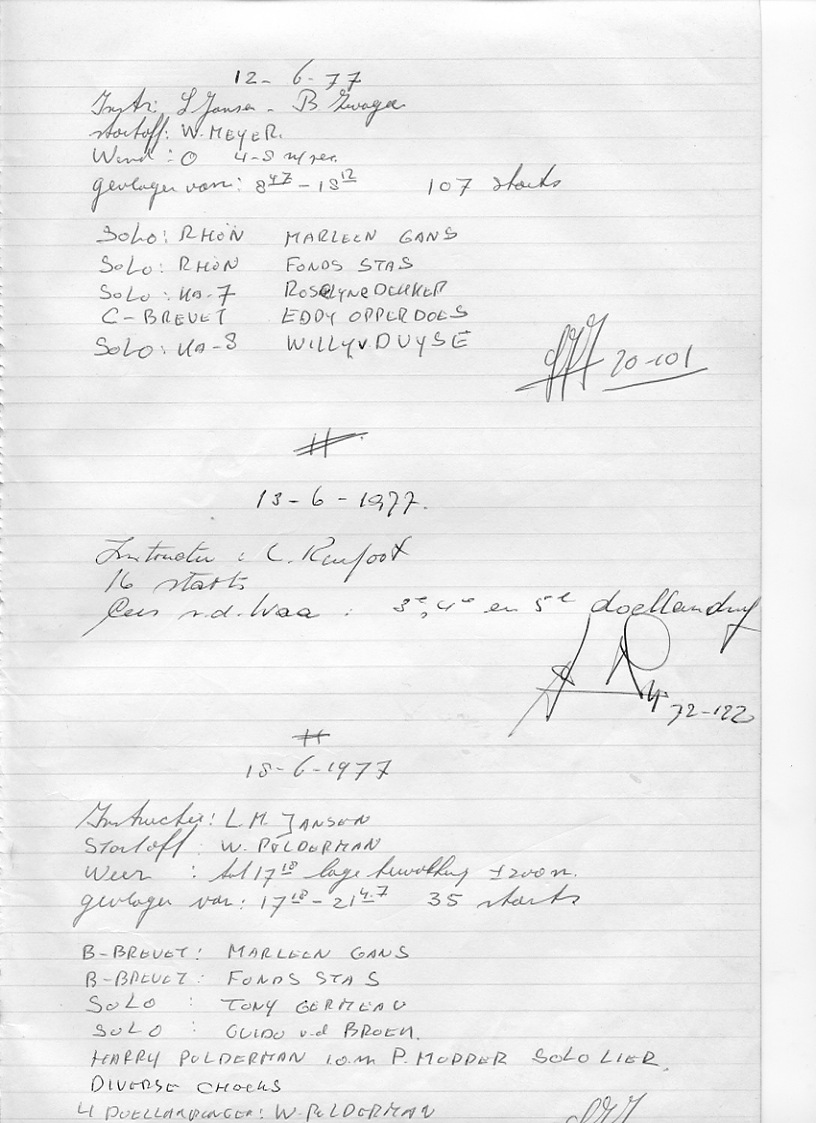 12-6-77
Instr: L Jansen - B Zwager
startoff: W. MEYER.
Wind: O 4-8 m/sec.
gevlogen van: 8 47 - 18 12 107 starts
SOLO: RHÖN MARLEEN GANS
SOLO: RHÖN FONDS STAS
SOLO: KA-7 ROSELYNE DEKKER
C-BREVET EDDY OPPERDOES
SOLO: KA-8 WILLY v DUYSE
20-101
#
13-6-1977.
Instructie: C.
16 starts
Cees v.d. : 3e, 4e en 5e doellanding
72-122
#
18-6-1977
Instructie: L.M. JANSEN
Startoff: W. POLDERMAN
Weer: tot 17 18 lage bewolking ±200 m.
gevlogen van: 17 18 - 21 47 35 starts
B-BREVET: MARLEEN GANS
B-BREVET: FONDS STAS
SOLO: TONY GERMEAU
SOLO: GUIDO v.d BROEK.
HARRY POLDERMAN i.o.m P. MODDER SOLO LIER.
DIVERSE CHECKS
4 DOELLANDINGEN: W. POLDERMAN